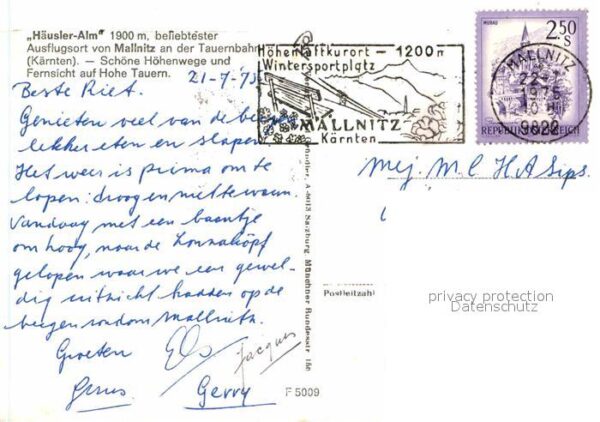 „Häusler-Alm" 1900 m, beliebtester
Ausflugsort von Mallnitz an der Tauernbahn
(Kärnten). — Schöne Höhenwege und
Fernsicht auf Hohe Tauern.
21-7-75
Beste Riet.
Genieten veel van de bergen
lekker eten en slapen
Het weer is prima om te
lopen: droog en niet te warm
Vandaag met een baantje
om hoog, naar de
gelopen waar we een gewel-
dig uitzicht hadden op de
bergen rondom Mallnitz.
Groeten Els Jacques
Gerry
Höhenluftkurort — 1200 m
Wintersportplatz
MALLNITZ
Kärnten
MURAU
2.50
S
MALLNITZ
22-7
1975
9822
REPUBLIK ÖSTERREICH
Mej. M C H A Sips.
A-8113 Salzburg Münchner Bundesstr
Postleitzahl
privacy protection
Datenschutz
F 5009